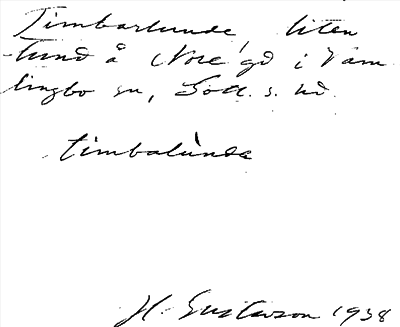 Timbarlunde, liten
lund å Nore gd i Vam
lingbo sn, Gotl. s. hd.
timbalùnda
H. Gustavson 1938